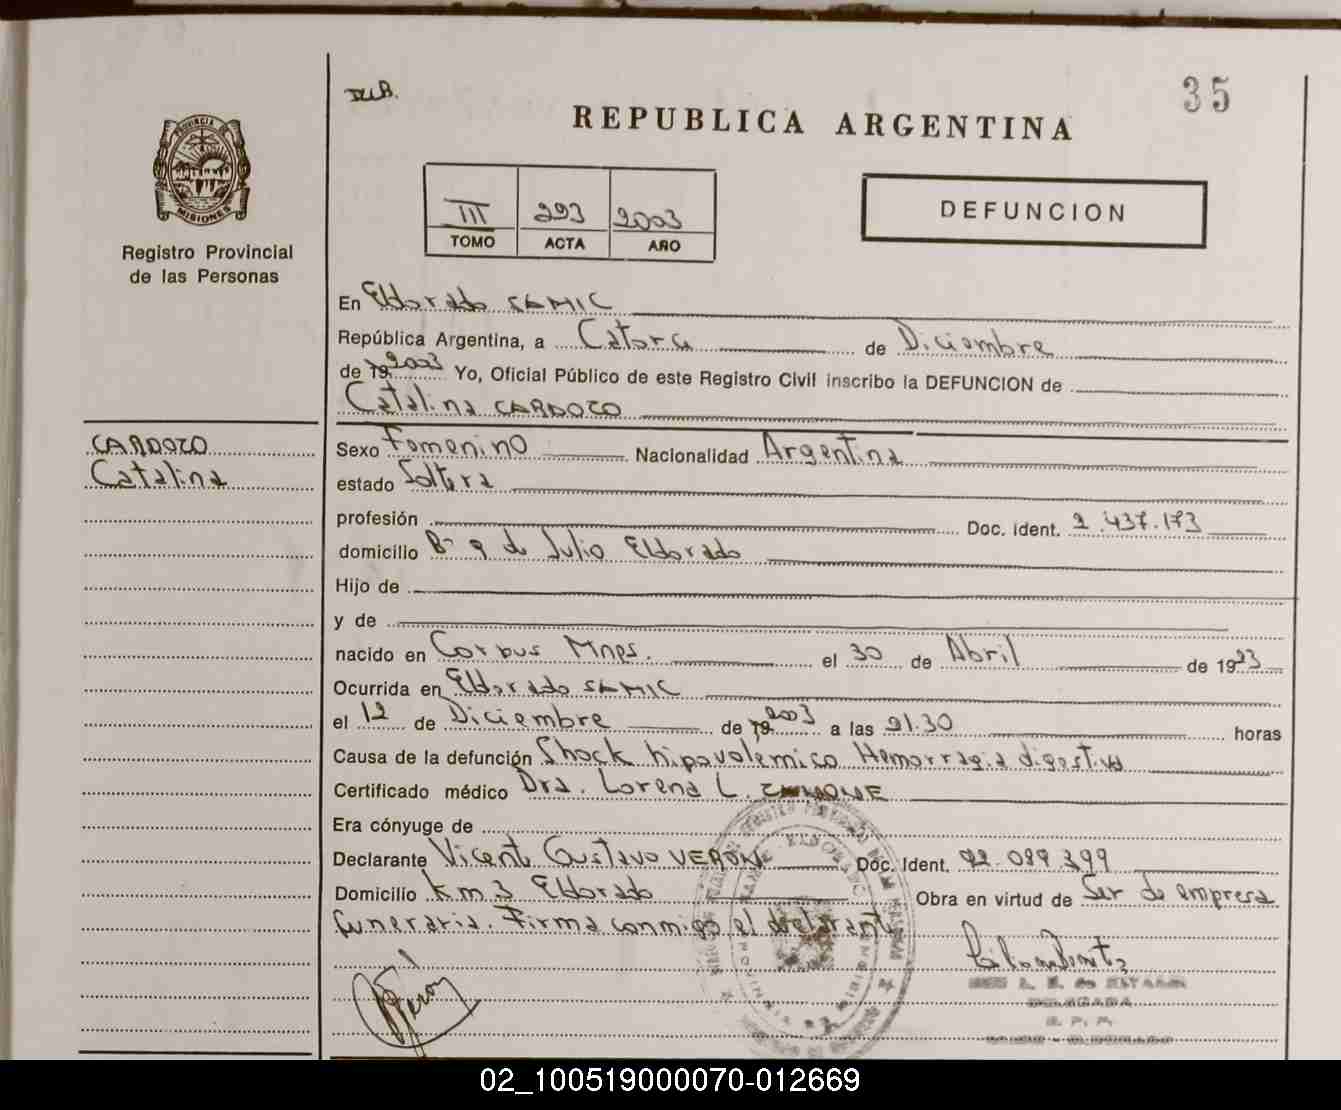 35
REPUBLICA ARGENTINA
PROVINCIA DE
MISIONES
Registro Provincial
de las Personas
III 293 2003
TOMO ACTA AÑO
DEFUNCION
En Eldorado SAMIC
República Argentina, a Catorce de Diciembre
de 19 2003 Yo, Oficial Público de este Registro Civil inscribo la DEFUNCION de
Catalina CARDOZO
CARDOZO
Catalina
Sexo Femenino Nacionalidad Argentina
estado Soltera
profesión Doc. ident. 2.437.173
domicilio Bº 9 de Julio Eldorado
Hijo de
y de
nacido en Corpus Mnes. el 30 de Abril de 1923
Ocurrida en Eldorado SAMIC
el 12 de Diciembre de 19 2003 a las 21.30 horas
Causa de la defunción Shock hipovolemico Hemorragia digestiva
Certificado médico Dra. Lorena L.
Era cónyuge de
Declarante Vicente Gustavo VERON Doc. Ident. 22.099.399
Domicilio K.m. 3 Eldorado Obra en virtud de Ser de empresa
funeraria. Firma conmigo el declarante
DELEGADA
02_100519000070-012669